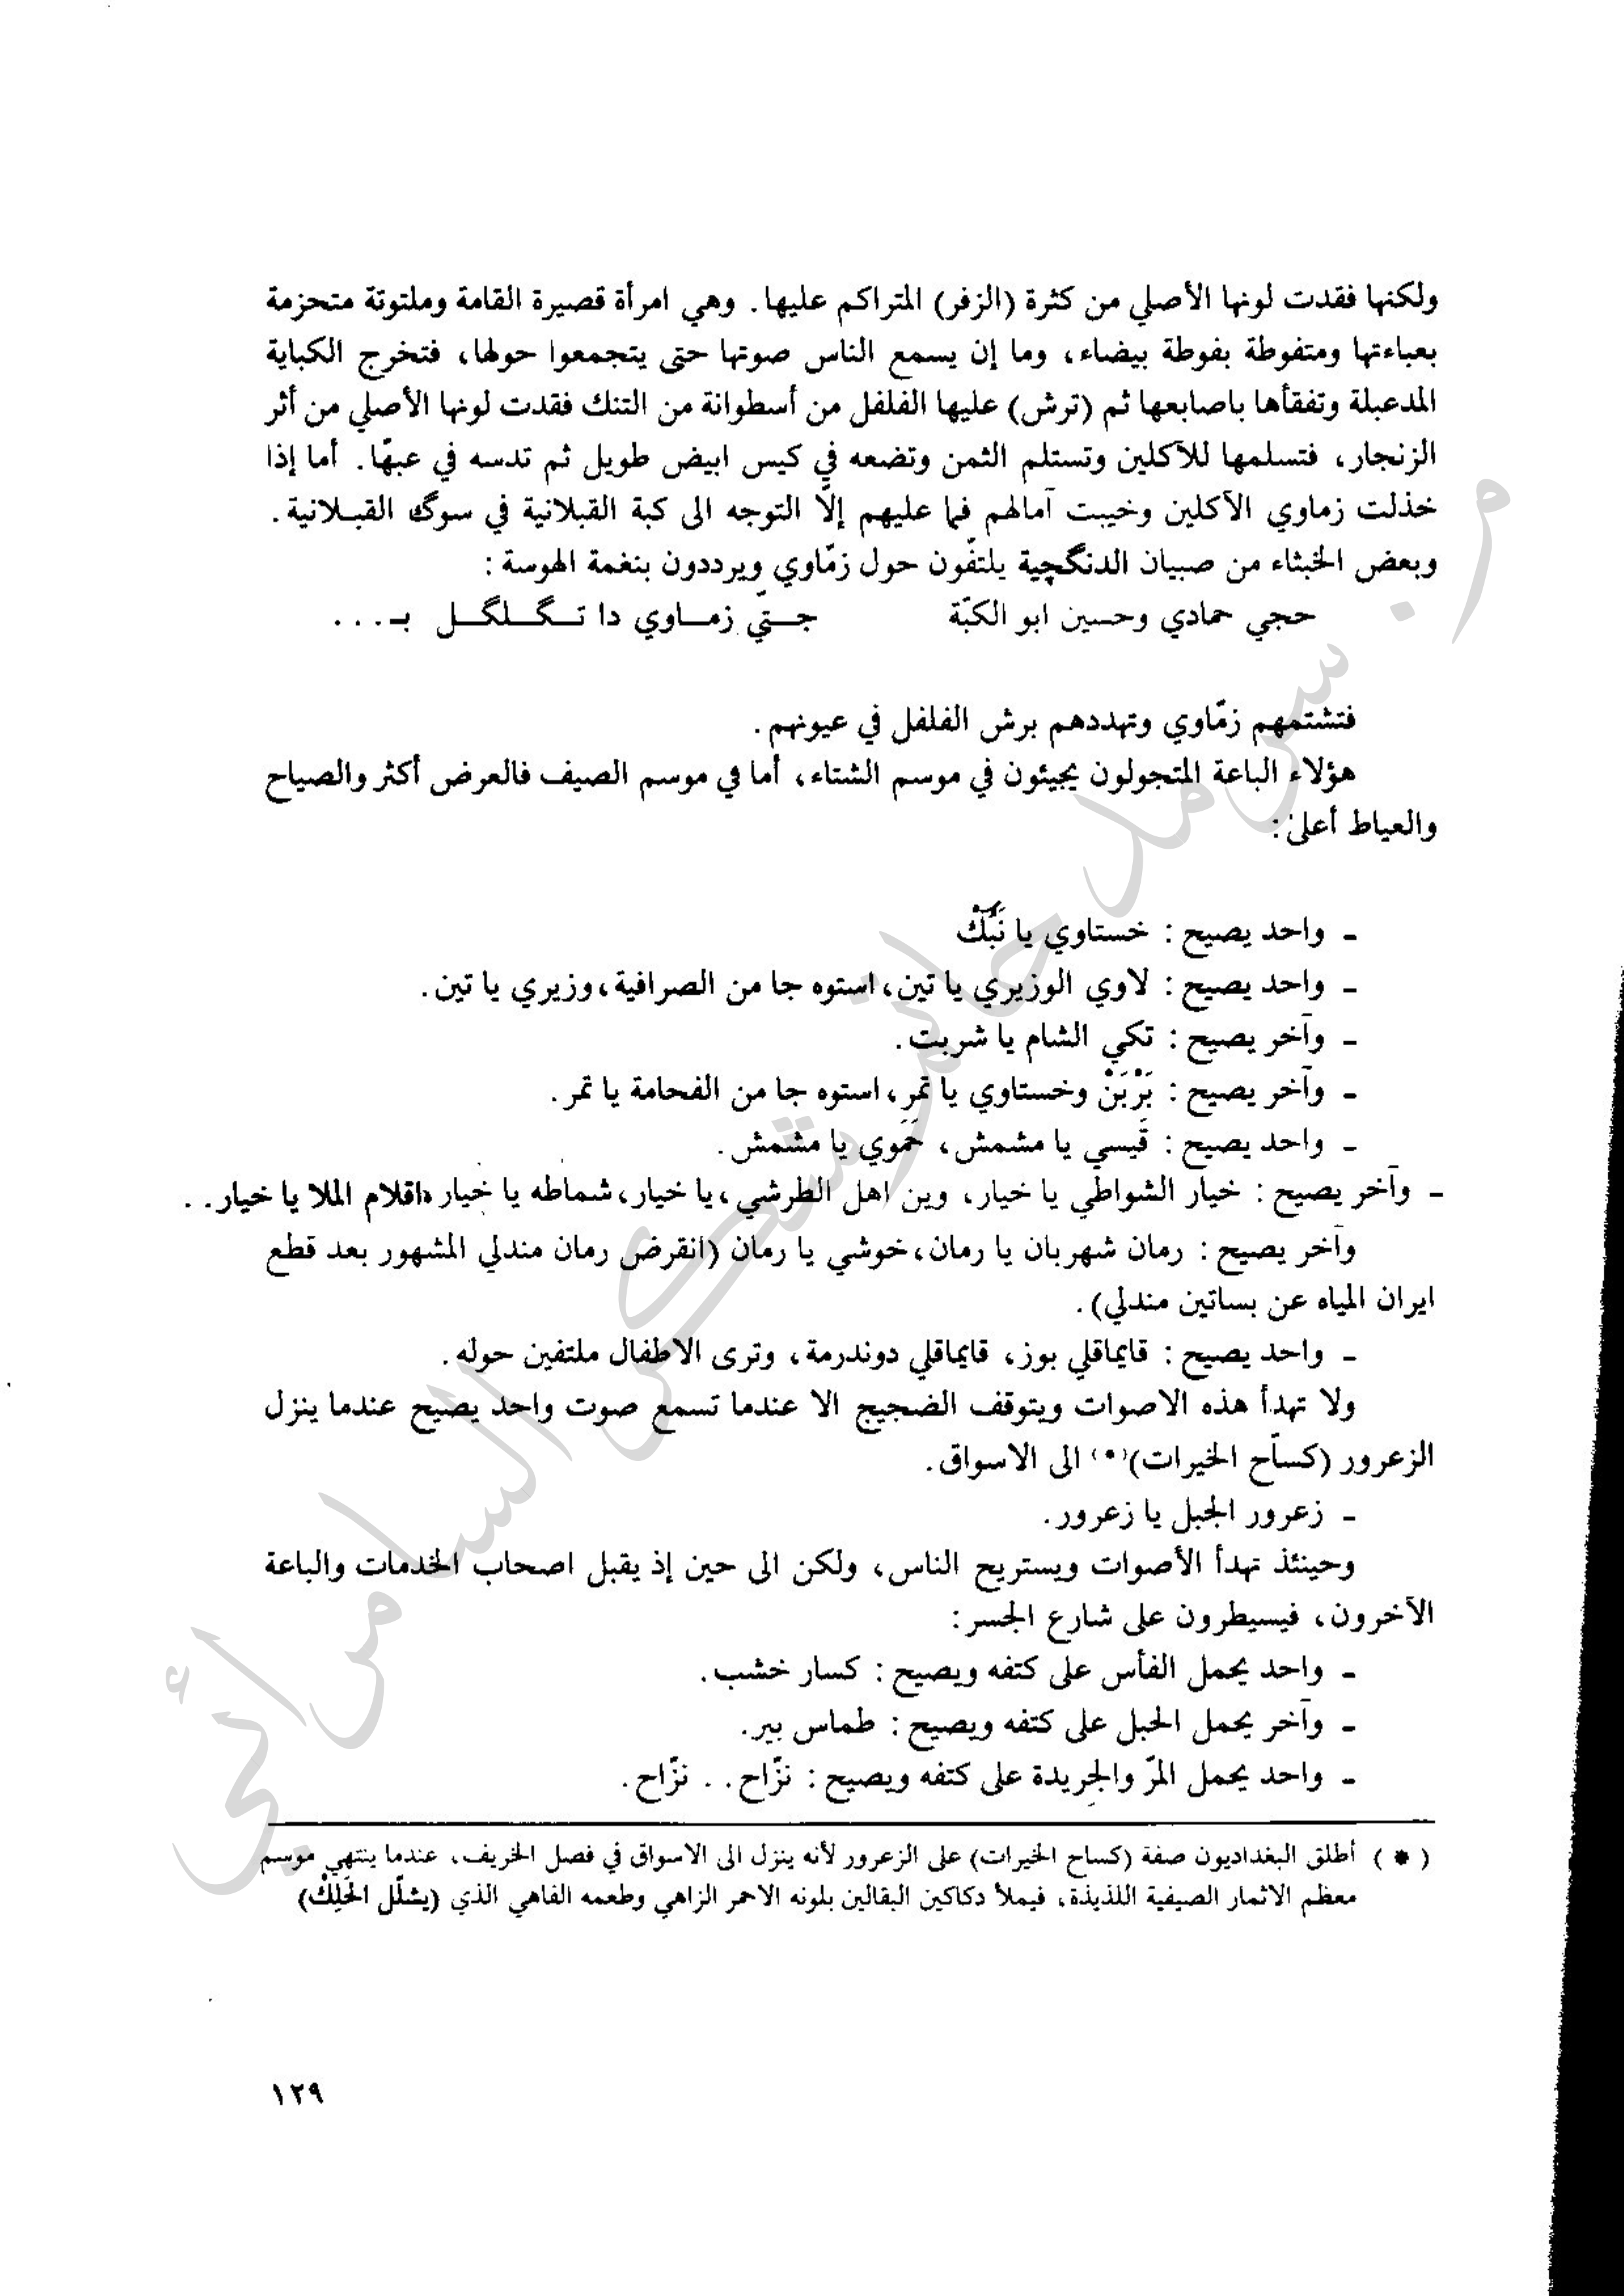 ولكنها فقدت لونها الأصلي من كثرة (الزفر) المتراكم عليها. وهي امرأة قصيرة القامة وملتوتة متحزمة
بعباءتها ومتفوطة بفوطة بيضاء، وما إن يسمع الناس صوتها حتى يتجمعوا حولها، فتخرج الكباية
المدعبلة وتفقأها باصابعها ثم (ترش) عليها الفلفل من أسطوانة من التنك فقدت لونها الأصلي من أثر
الزنجار، فتسلمها للآكلين وتستلم الثمن وتضعه في كيس ابيض طويل ثم تدسه في عبهّا. أما إذا
خذلت زماوي الآكلين وخيبت آمالهم فما عليهم إلّا التوجه الى كبة القبلانية في سوگ القبـلانية.
وبعض الخبثاء من صبيان الدنگچية يلتفّون حول زمّاوي ويرددون بنغمة الهوسة:
حجي حمادي وحسين ابو الكبّة جـــتّي زمـــاوي دا تــگــلگــل بـ...
فتشتمهم زمّاوي وتهددهم برش الفلفل في عيونهم.
هؤلاء الباعة المتجولون يجيئون في موسم الشتاء، أما في موسم الصيف فالعرض أكثر والصياح
والعياط أعلىٰ:
- واحد يصيح: خستاوي يا نَبَگْ
- واحد يصيح: لاوي الوزيري يا تين، استوه جا من الصرافية، وزيري يا تين.
- وآخر يصيح: تكي الشام يا شربت.
- وآخر يصيح: بَرْبَنْ وخستاوي يا تمر، استوه جا من الفحامة يا تمر.
- واحد يصيح: قَيسي يا مشمش، حَمَوي يا مشمش.
- وآخر يصيح: خيار الشواطي يا خيار، وين اهل الطرشي، يا خيار، شماطه يا خيار، اقلام الملا يا خيار..
وآخر يصيح: رمان شهربان يا رمان، خوشي يا رمان (انقرض رمان مندلي المشهور بعد قطع
ايران المياه عن بساتين مندلي).
- واحد يصيح: قايماقلي بوز، قايماقلي دوندرمة، وترى الاطفال ملتفين حوله.
ولا تهدأ هذه الاصوات ويتوقف الضجيج الا عندما تسمع صوت واحد يصيح عندما ينزل
الزعرور (كسّاح الخيرات)(*) الى الاسواق.
- زعرور الجبل يا زعرور.
وحينئذ تهدأ الأصوات ويستريح الناس، ولكن الى حين إذ يقبل اصحاب الخدمات والباعة
الآخرون، فيسيطرون على شارع الجسر:
- واحد يحمل الفأس على كتفه ويصيح: كسار خشب.
- وآخر يحمل الحبل على كتفه ويصيح: طماس بير.
- واحد يحمل المرّ والجريدة على كتفه ويصيح: نزّاح.. نزّاح.
(*) أطلق البغداديون صفة (كساح الخيرات) على الزعرور لأنه ينزل الى الاسواق في فصل الخريف، عندما ينتهي موسم
معظم الاثمار الصيفية اللذيذة، فيملأ دكاكين البقالين بلونه الاحمر الزاهي وطعمه الفاهي الذي (يشلّل الحَلِگْ)
١٢٩